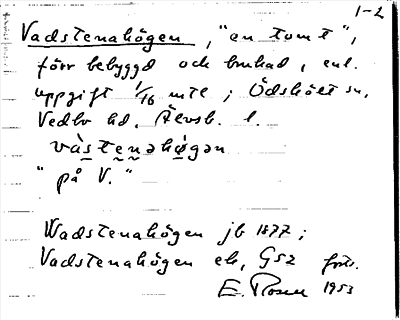 1-2
Vadstenahögen, "en tomt",
förr bebyggd och brukad, enl.
uppgift 1/16 mtl; Ödshölt sn,
Vedbo hd. Älvsb. l.
vàstenahǿgən
"på V."
Wadstenahögen jb 1877;
Vadstenahögen ek, G52
E. Rosell 1953